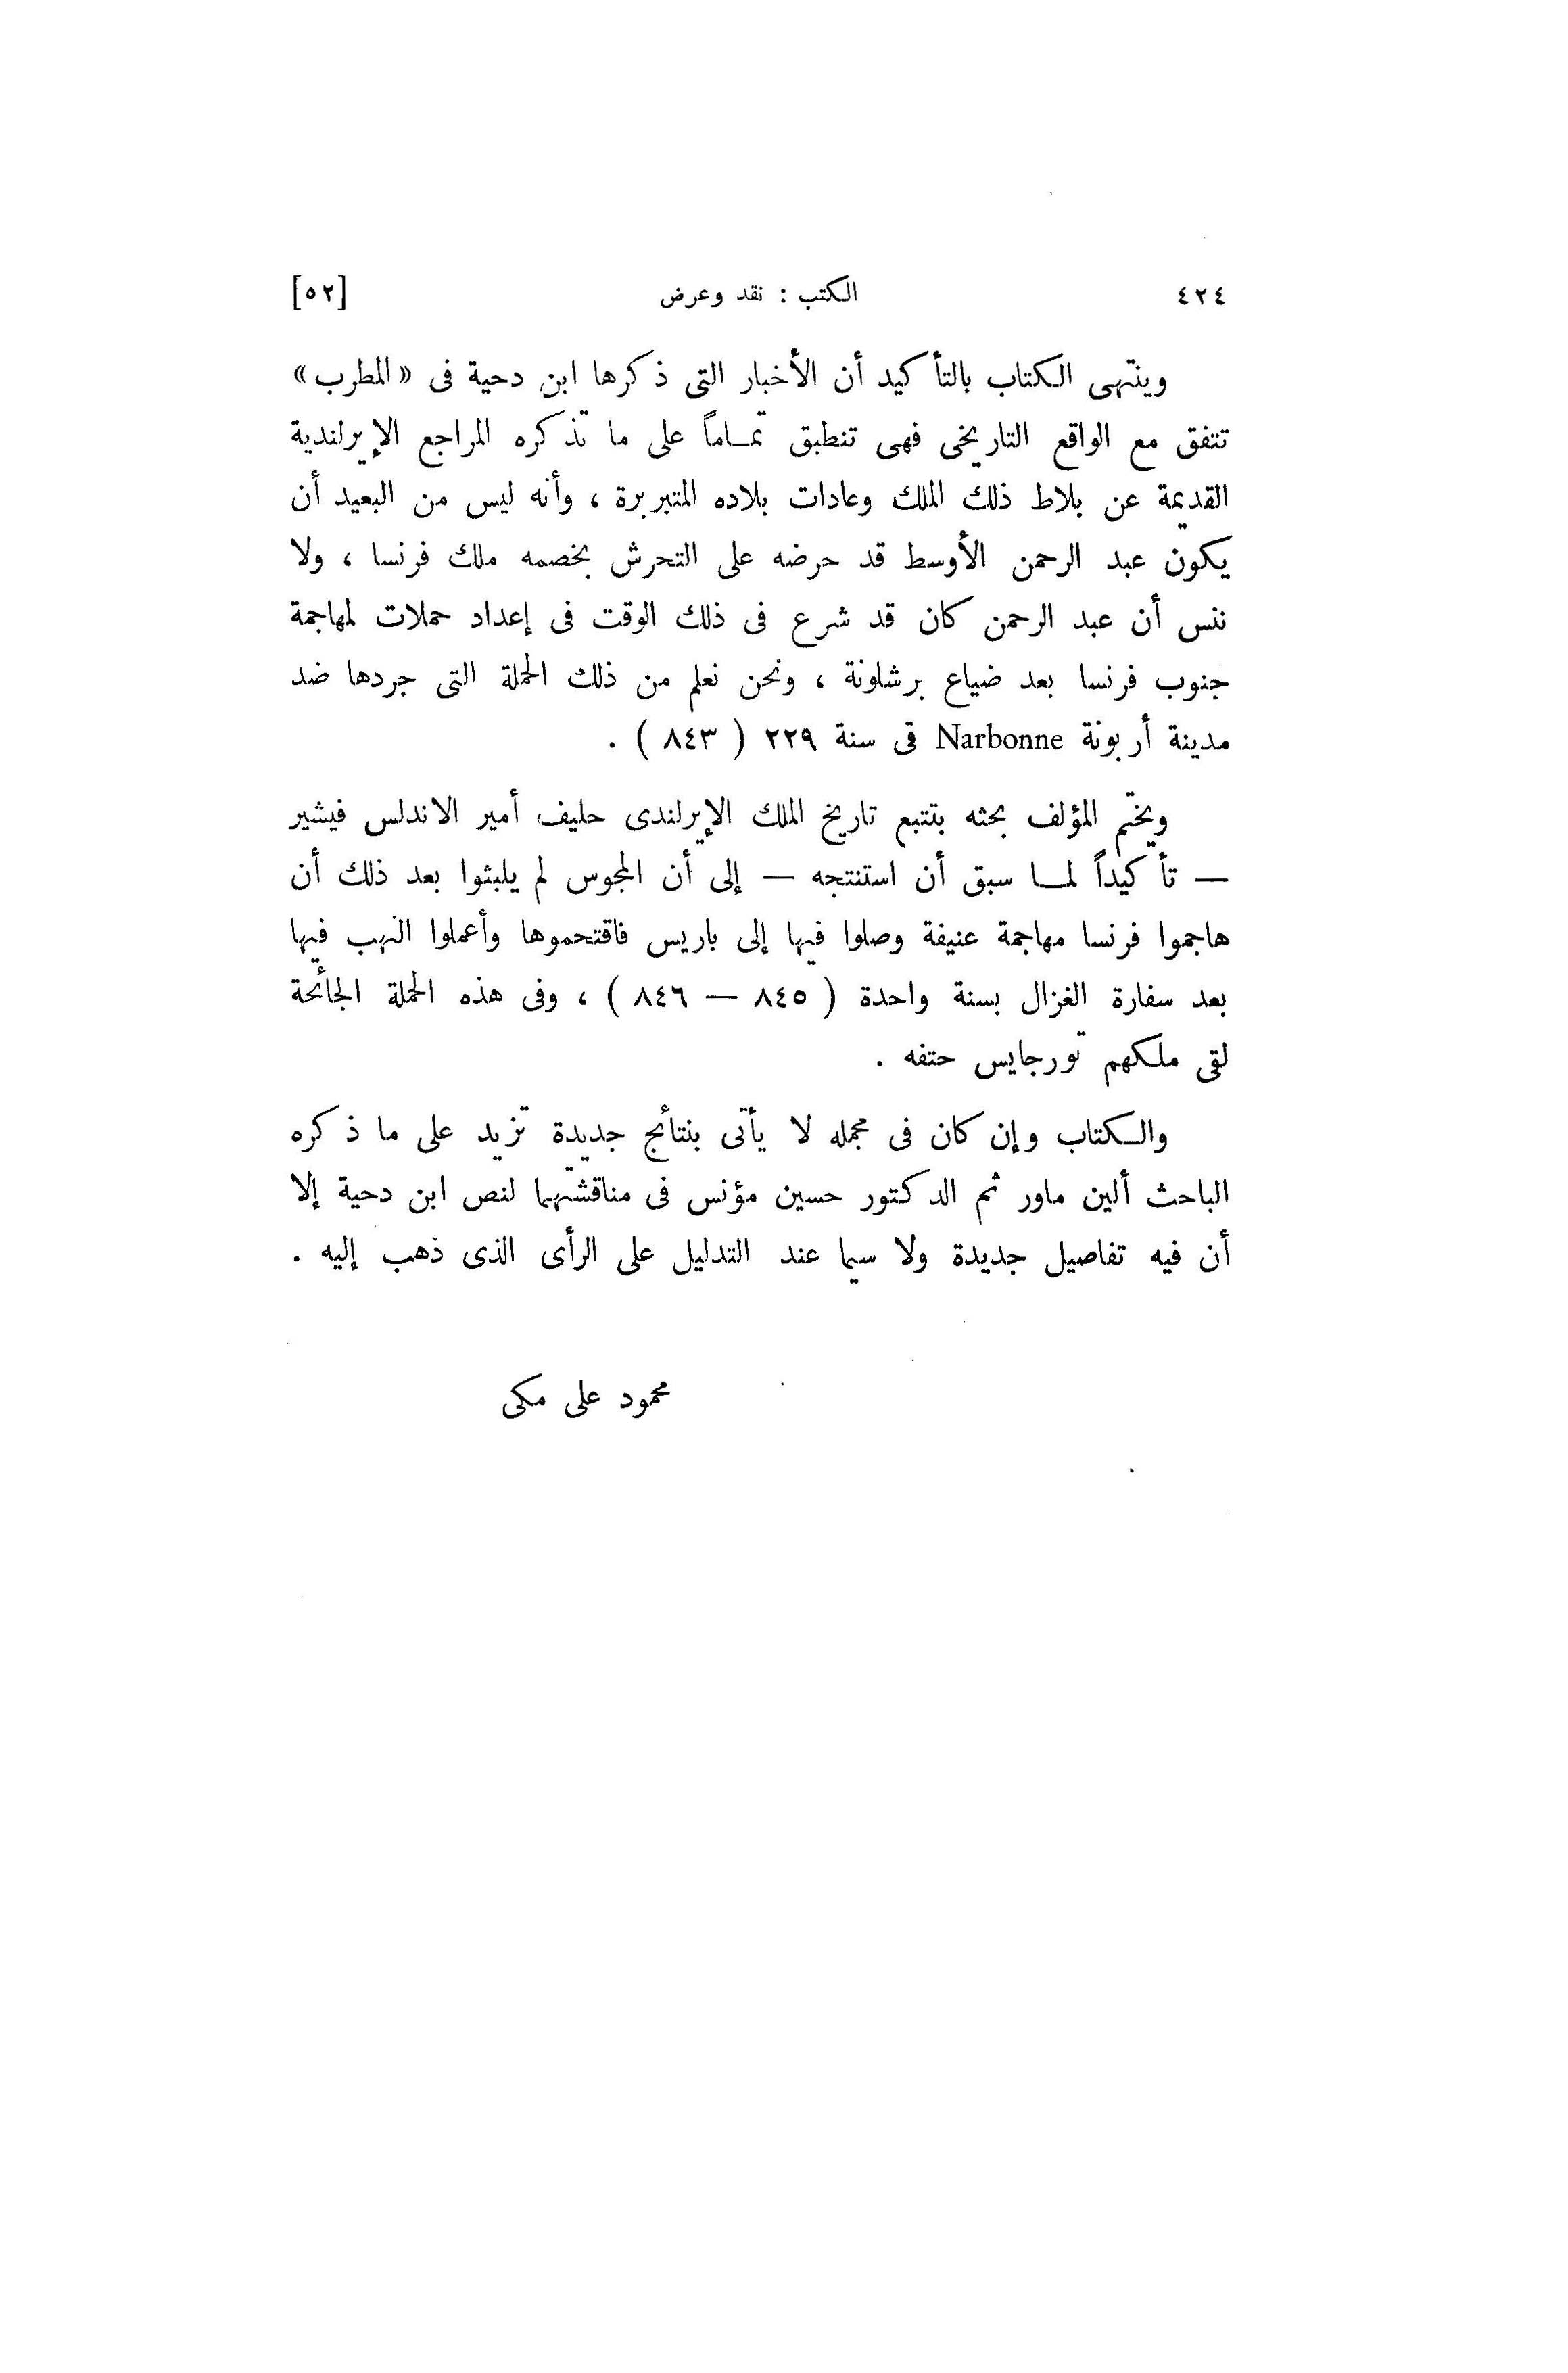 ٤٢٤ الكتب : نقد وعرض [٥٢]
وينتهى الكتاب بالتأكيد أن الأخبار التى ذكرها ابن دحية فى «المطرب»
تتفق مع الواقع التاريخى فهى تنطبق تمـاماً على ما تذكره المراجع الإيرلندية
القديمة عن بلاط ذلك الملك وعادات بلاده المتبربرة ، وأنه ليس من البعيد أن
يكون عبد الرحمن الأوسط قد حرضه على التحرش بخصمه ملك فرنسا ، ولا
ننس أن عبد الرحمن كان قد شرع فى ذلك الوقت فى إعداد حملات لمهاجمة
جنوب فرنسا بعد ضياع برشلونة ، ونحن نعلم من ذلك الحملة التى جردها ضد
مدينة أربونة Narbonne فى سنة ٢٢٩ ( ٨٤٣ ) .
ويختم المؤلف بحثه بتتبع تاريخ الملك الإيرلندى حليف أمير الاندلس فيشير
— تأكيداً لمـا سبق أن استنتجه — إلى أن المجوس لم يلبثوا بعد ذلك أن
هاجموا فرنسا مهاجمة عنيفة وصلوا فيها إلى باريس فاقتحموها وأعملوا النهب فيها
بعد سفارة الغزال بسنة واحدة ( ٨٤٥ — ٨٤٦ ) ، وفى هذه الحملة الجائحة
لقى ملكهم تورجايس حتفه .
والكتاب وإن كان فى مجمله لا يأتى بنتائج جديدة تزيد على ما ذكره
الباحث ألين ماور ثم الدكتور حسين مؤنس فى مناقشتهما لنص ابن دحية إلا
أن فيه تفاصيل جديدة ولا سيما عند التدليل على الرأى الذى ذهب إليه .
محمود على مكى